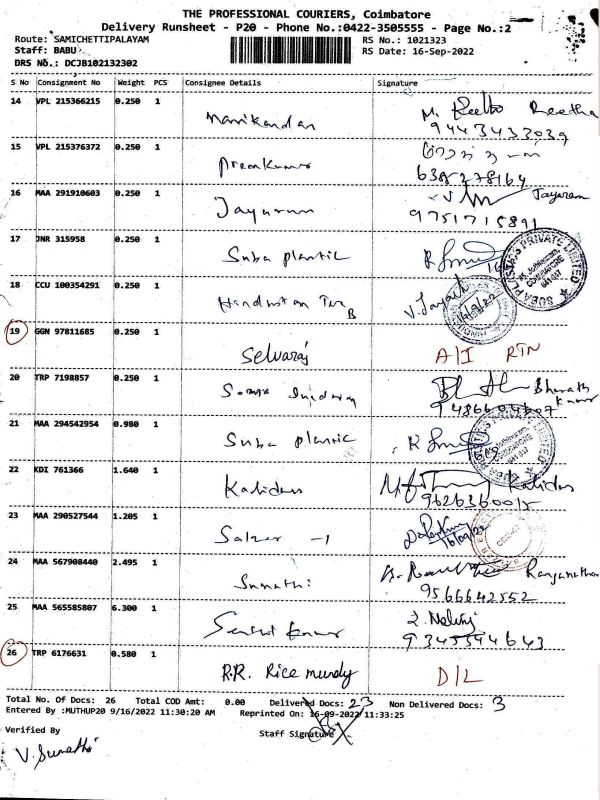 THE PROFESSIONAL COURIERS, Coimbatore
Delivery Runsheet - P20 - Phone No.:0422-3505555 - Page No.:2
Route: SAMICHETTIPALAYAM RS No.: 1021323
Staff: BABU RS Date: 16-Sep-2022
DRS No.: DCJB102132302
S No Consignment No Weight PCS Consignee Details Signature
14 VPL 215366215 0.250 1 Manikandan Reetha
9443433039
15 VPL 215376372 0.250 1 Premkumar
6382278164
16 MAA 291910603 0.250 1 Jayaram Jayaram
9751715891
17 JNR 315958 0.250 1 Suba plastic
SUBA PLASTICS PRIVATE LIMITED
COIMBATORE
641 047
18 CCU 100354291 0.250 1 Hindustan
16/9/22
19 GGN 97811685 0.250 1 Selvaraj A/I RTN
20 TRP 7198857 0.250 1 Bharath Kumar
21 MAA 294542954 0.980 1 Suba plastic
22 KDI 761366 1.640 1 Kalidas Kalidas
9626360015
23 MAA 290527544 1.205 1 Salzer -1
16/09/22
24 MAA 567908440 2.495 1 Sumathi Ranganathan
9566642552
25 MAA 565585807 6.300 1 Senthil kumar
9345594643
26 TRP 6176631 0.580 1 R.R. Rice mundy D/L
Total No. Of Docs: 26 Total COD Amt: 0.00 Delivered Docs: 23 Non Delivered Docs: 3
Entered By :MUTHUP20 9/16/2022 11:30:20 AM Reprinted On: 16-09-2022 11:33:25
Verified By Staff Signature
V. Sumathi